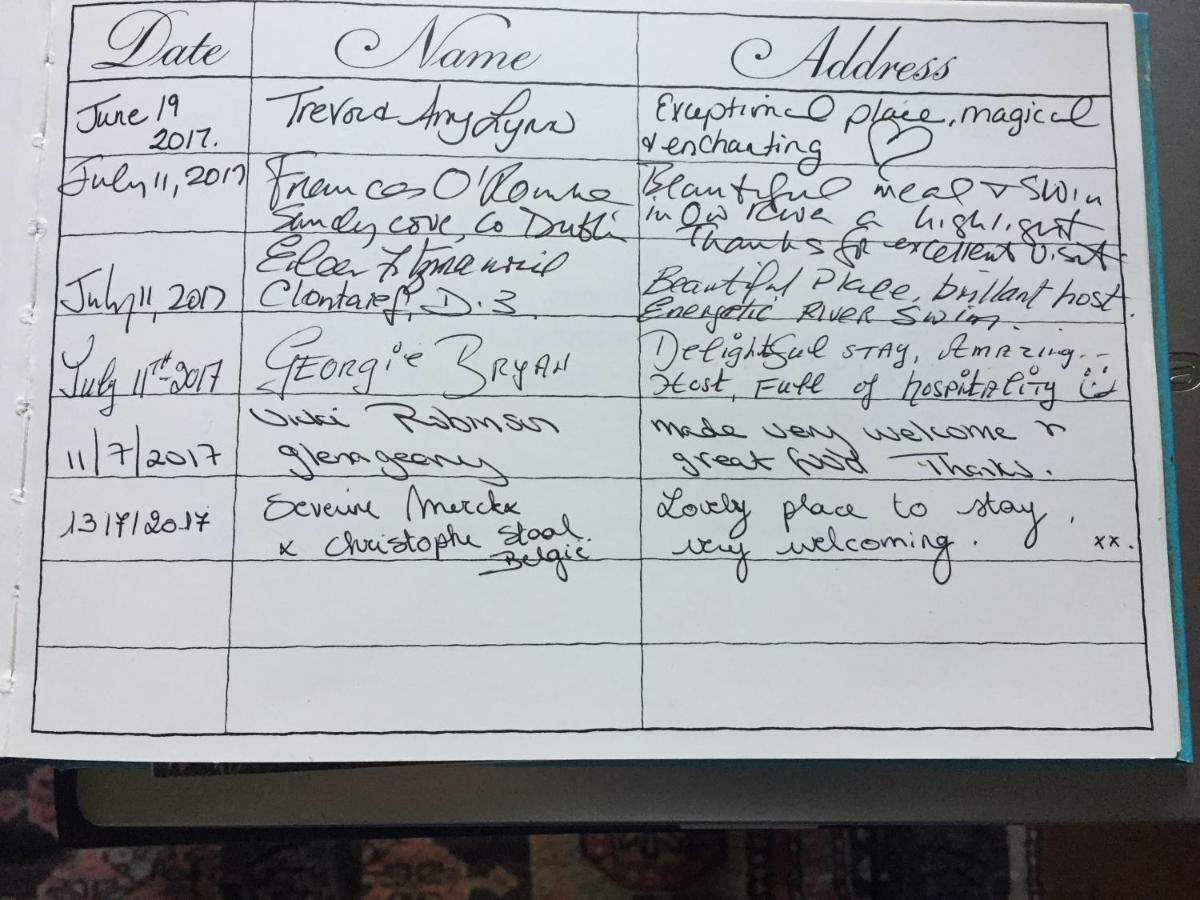 Date Name Address
June 19 2017. Trevor & Amy Lynn Exceptional place, magical
& enchanting ♡
July 11, 2017 Frances O'Rourke Beautiful meal & swim
Sandycove, Co Dublin in River a highlight
Thanks for excellent visit
July 11, 2017 Beautiful Place, brillant host.
Clontarf, D.3. Energetic RIVER Swim.
July 11TH-2017 GEORGIE BRYAN Delightful STAY, Amazing...
Host, Full of hospitality ☺
11/7/2017 Vikki Robinson made very welcome &
glenageary great food Thanks.
13/7/2017 Severine Merckx Lovely place to stay,
& Christophe Staal. very welcoming. xx.
België